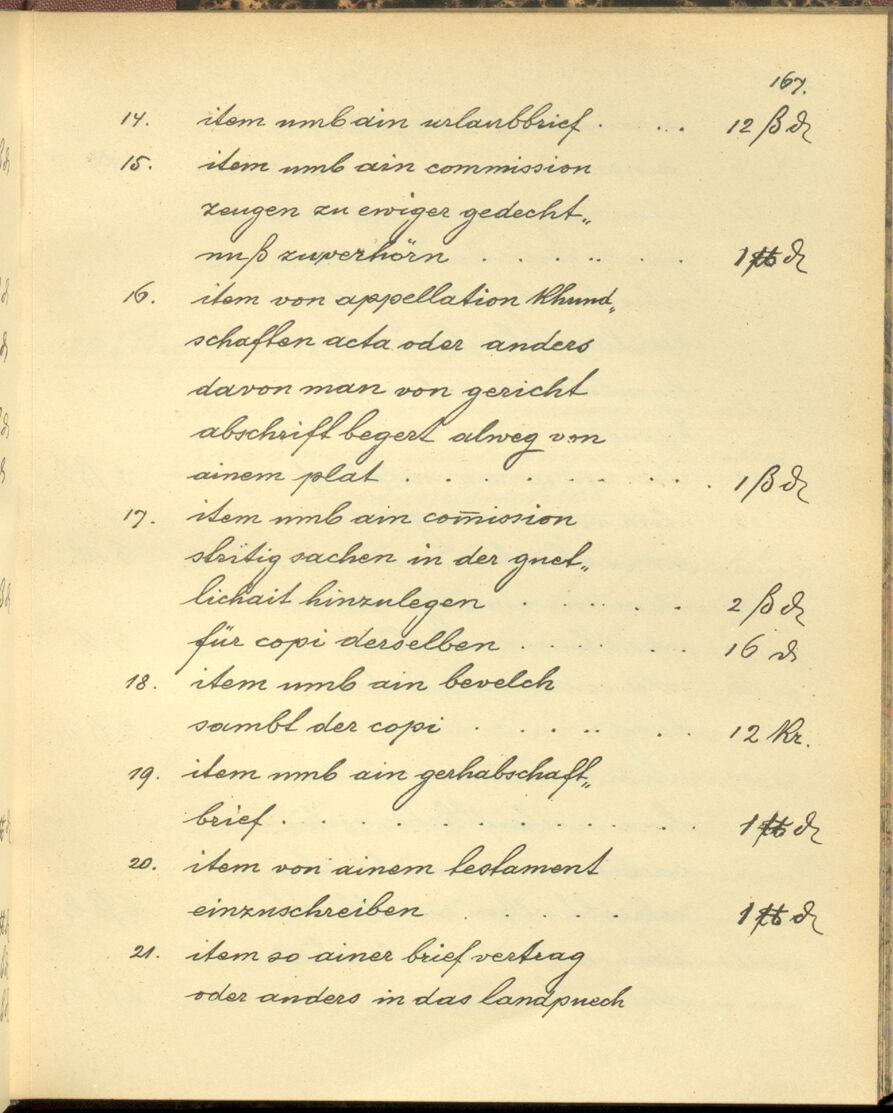 167.
14. item umb ain urlaubbrief . . . . 12 ß ₰
15. item umb ain commission
zeugen zu ewiger gedecht„
nuß zuverhörn . . . . . . 1 ℔ ₰
16. item von appellation khund„
schaften acta oder anders
davon man von gericht
abschrift begert alweg von
ainem plat . . . . . . 1 ß ₰
17. item umb ain com̅ission
stritig sachen in der guet„
lichait hinzulegen . . . . . 2 ß ₰
für copi derselben . . . . 16 ₰
18. item umb ain bevelch
sambt der copi . . . . . . 12 kr.
19. item umb ain gerhabschaft„
brief . . . . . . . 1 ℔ ₰
20. item von ainem testament
einzuschreiben . . . . 1 ℔ ₰
21. item so ainer brief vertrag
oder anders in das landpuech